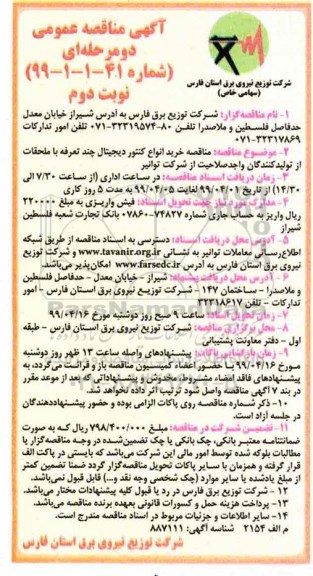 آگهی مناقصه عمومی
دومرحله‌ای
(شماره ۴۱-۱-۱-۹۹)
نوبت دوم
شرکت توزیع نیروی برق استان فارس
(سهامی خاص)
۱- نام مناقصه‌گزار: شرکت توزیع برق فارس به آدرس شیراز خیابان معدل
حدفاصل فلسطین و ملاصدرا تلفن ۸۰-۳۲۳۱۹۵۷۴-۰۷۱ تلفن امور تدارکات
۰۷۱-۳۲۳۱۷۸۶۹
۲- موضوع مناقصه: مناقصه خرید انواع کنتور دیجیتال چند تعرفه با ملحقات
از تولیدکنندگان واجدصلاحیت از شرکت توانیر
۳- زمان دریافت اسناد مناقصه: در ساعت اداری (از ساعت ۷/۳۰ الی
۱۴/۳۰) از تاریخ ۹۹/۰۴/۰۱ لغایت ۹۹/۰۴/۰۵ به مدت ۵ روز کاری
۴- مدارک مورد نیاز جهت تحویل اسناد: فیش واریزی به مبلغ ۲۲۰۰۰۰
ریال واریز به حساب جاری شماره ۰۷۸۶۰۰۷۴۸۲۷ بانک تجارت شعبه فلسطین
شیراز
۵- آدرس محل دریافت اسناد: دسترسی به اسناد مناقصه از طریق شبکه
اطلاع‌رسانی معاملات توانیر به نشانی www.tavanir.org.ir و شرکت توزیع
نیروی برق استان فارس به آدرس www.farsedc.ir امکان‌پذیر می‌باشد.
۶- آدرس محل دریافت پیشنهاد: شیراز - خیابان معدل - حدفاصل فلسطین
و ملاصدرا - ساختمان ۱۴۷ - شرکت توزیع نیروی برق استان فارس - امور
تدارکات - تلفن ۳۲۳۱۸۶۱۷
۷- زمان تحویل اسناد: ساعت ۹ صبح روز دوشنبه مورخ ۹۹/۰۴/۱۶
۸- محل برگزاری مناقصه: شرکت توزیع نیروی برق استان فارس - طبقه
اول - دفتر معاونت پشتیبانی
۹- زمان بازگشایی پاکات: پیشنهادهای واصله ساعت ۱۳ ظهر روز دوشنبه
مورخ ۹۹/۰۴/۱۶ با حضور اعضاء کمیسیون مناقصه باز و قرائت می‌گردد، به
پیشنهادهای فاقد امضاء مشروط، مخدوش و پیشنهاداتی که بعد از موعد مقرر
در بند ۷ آگهی مناقصه واصل شود ترتیب اثر داده نخواهد شد.
۱۰- ذکر شماره مناقصه روی پاکات الزامی بوده و حضور پیشنهاددهندگان
در جلسه آزاد است.
۱۱- تضمین شرکت در مناقصه: مبلغ ۷۹۸/۴۰۰/۰۰۰ ریال که به صورت
ضمانتنامه معتبر بانکی، چک بانکی یا چک تضمین‌شده در وجه مناقصه‌گزار یا
مطالبات بلوکه شده توسط امور مالی این شرکت می‌باشد که بایستی در پاکت الف
قرار گرفته و همزمان با سایر پاکات تحویل مناقصه‌گزار گردد ضمنا تضمین کمتر
از مبلغ یادشده یا سایر موارد (چک شخصی وجه نقد و...) قابل قبول نمی‌باشد.
۱۲- شرکت توزیع برق فارس در رد یا قبول کلیه پیشنهادات مختار می‌باشد.
۱۳- پرداخت هزینه حمل و کسورات قانونی بعهده برنده مناقصه می‌باشد.
۱۴- سایر اطلاعات و جزئیات مربوط در اسناد مناقصه مندرج است.
م الف ۲۱۵۴ شناسه آگهی: ۸۸۷۱۱۱
شرکت توزیع نیروی برق استان فارس